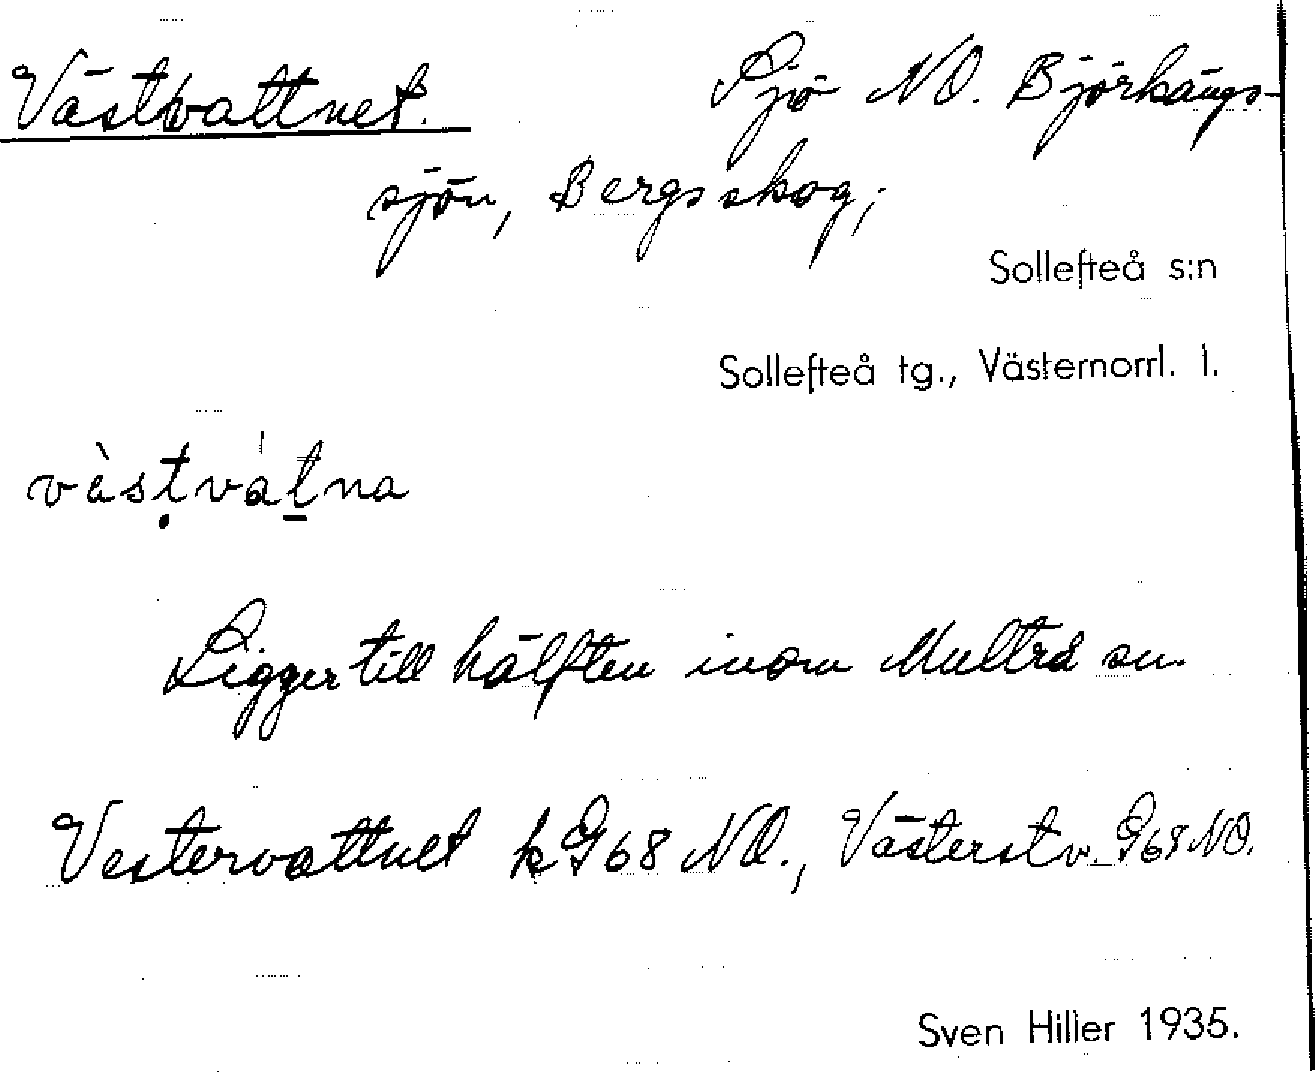 Västvattnet. Sjö NO. Björkängs-
sjön, Bergsskog;
Sollefteå s:n
Sollefteå tg., Västernorrl. l.
våstvátna
Ligger till hälften inom Multrå sn.
Vestervattnet kG68 NO., Västerstv. G68 NO.
Sven Hiller 1935.